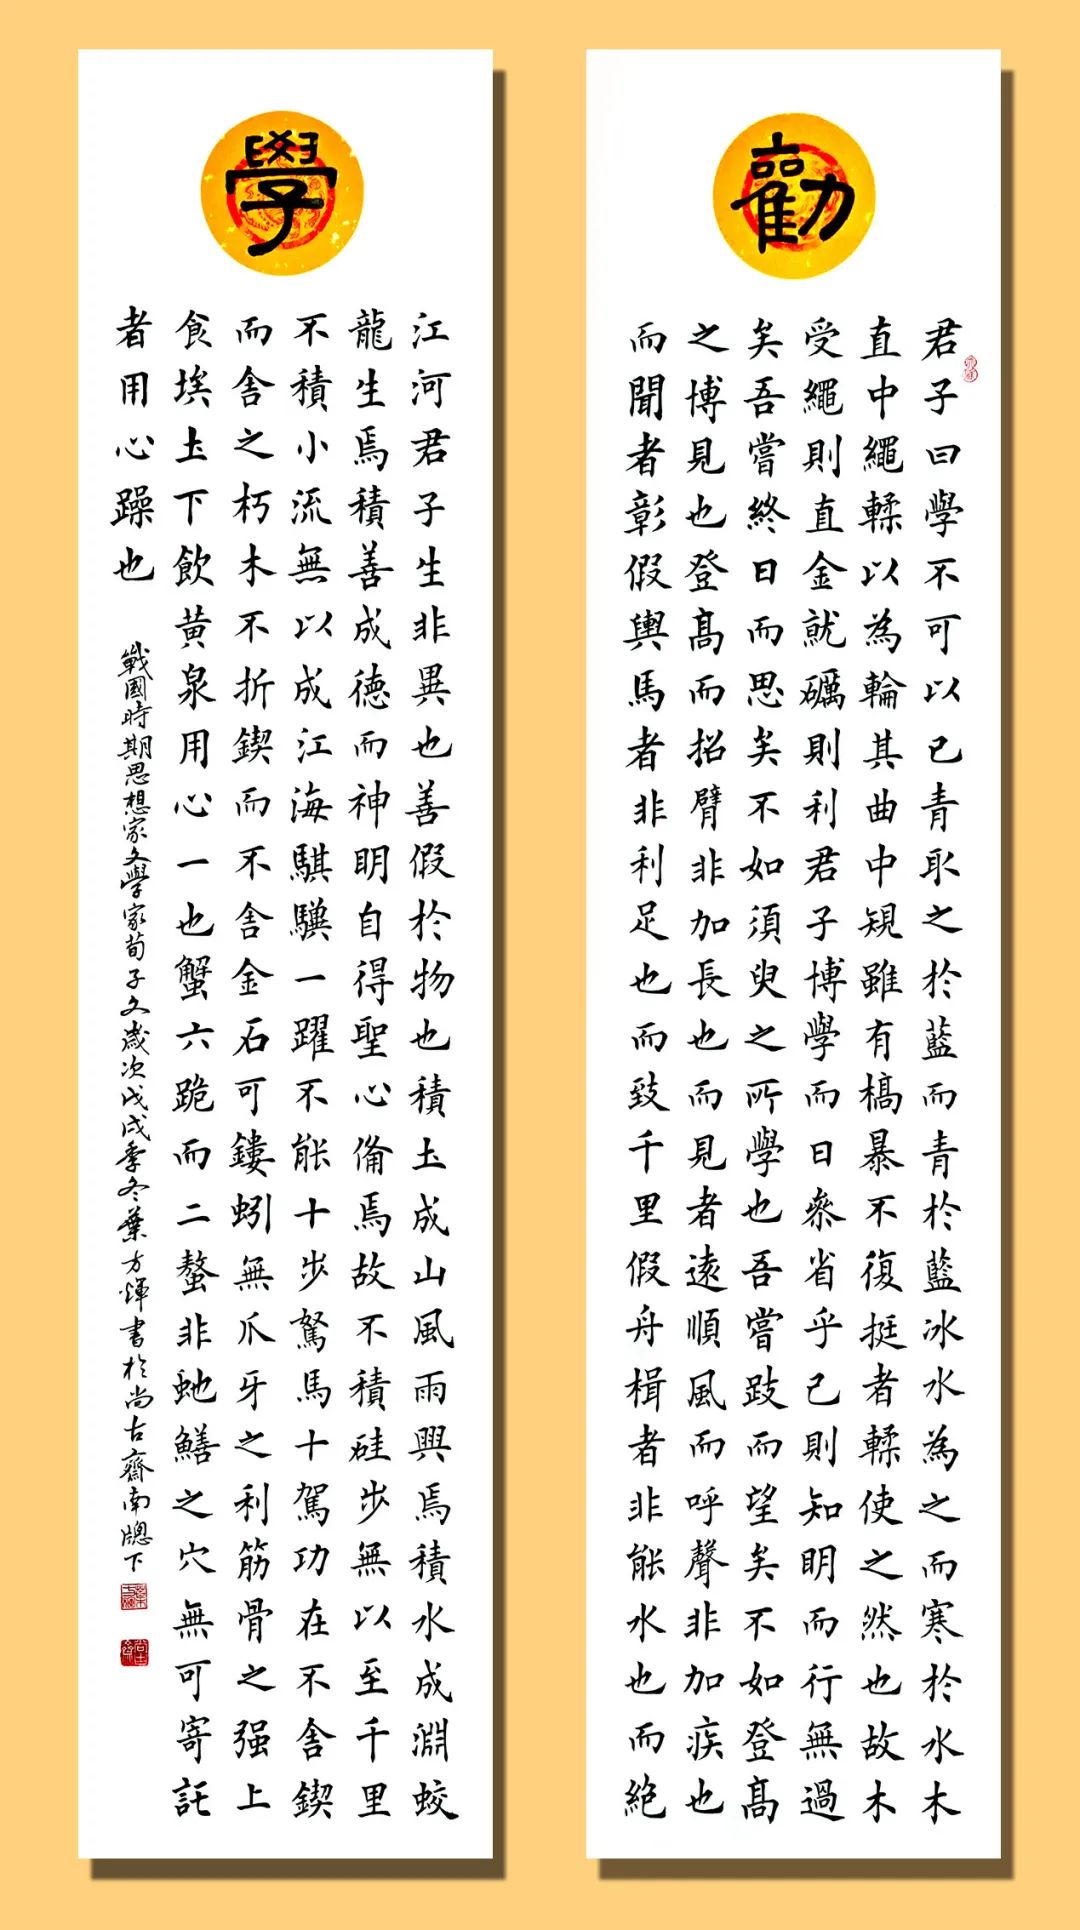 勸
君子曰學不可以已青取之於藍而青於藍冰水為之而寒於水木
直中繩輮以為輪其曲中規雖有槁暴不復挺者輮使之然也故木
受繩則直金就礪則利君子博學而日參省乎己則知明而行無過
矣吾嘗終日而思矣不如須臾之所學也吾嘗跂而望矣不如登髙
之博見也登髙而招臂非加長也而見者遠順風而呼聲非加疾也
而聞者彰假輿馬者非利足也而致千里假舟楫者非能水也而絕
學
江河君子生非異也善假於物也積土成山風雨興焉積水成淵蛟
龍生焉積善成德而神明自得聖心備焉故不積硅步無以至千里
不積小流無以成江海騏驥一躍不能十步駑馬十駕功在不舍鍥
而舍之朽木不折鍥而不舍金石可鏤蚓無爪牙之利筋骨之强上
食埃土下飲黄泉用心一也蟹六跪而二螯非虵鱔之穴無可寄託
者用心躁也
戰國時期思想家文學家荀子文歲次戊戌季冬葉方煇書於尚古齋南牕下